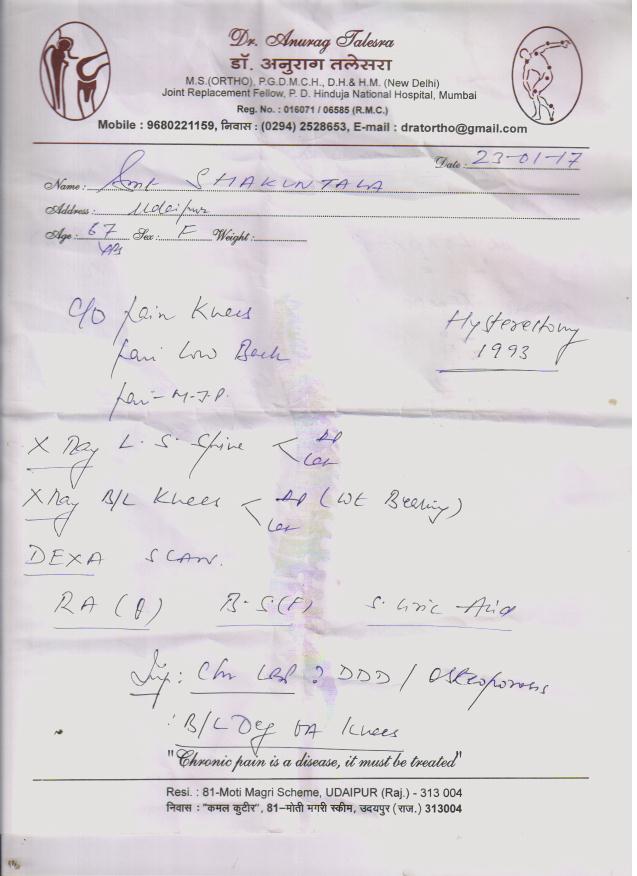 Dr. Anurag Talesra
डॉ. अनुराग तलेसरा
M.S.(ORTHO), P.G.D.M.C.H., D.H.& H.M. (New Delhi)
Joint Replacement Fellow, P. D. Hinduja National Hospital, Mumbai
Reg. No. : 016071 / 06585 (R.M.C.)
Mobile : 9680221159, निवास : (0294) 2528653, E-mail : dratortho@gmail.com
Date : 23-01-17
Name : Smt SHAKUNTALA
Address : Udaipur
Age : 67 yrs Sex : F Weight :
C/O Pain Knees
Pain Low Back
Pain - M.J.P.
Hysterectomy
1993
X Ray L. S. Spine < AP
Lat
X Ray B/L Knees < AP (Wt Bearing)
Lat
DEXA SCAN.
RA (Q) B.S(F) S. Uric Acid
Imp : Chr LBP ? DDD / Osteoporosis
: B/L Deg OA Knees
"Chronic pain is a disease, it must be treated"
Resi. : 81-Moti Magri Scheme, UDAIPUR (Raj.) - 313 004
निवास : "कमल कुटीर", 81-मोती मगरी स्कीम, उदयपुर (राज.) 313004